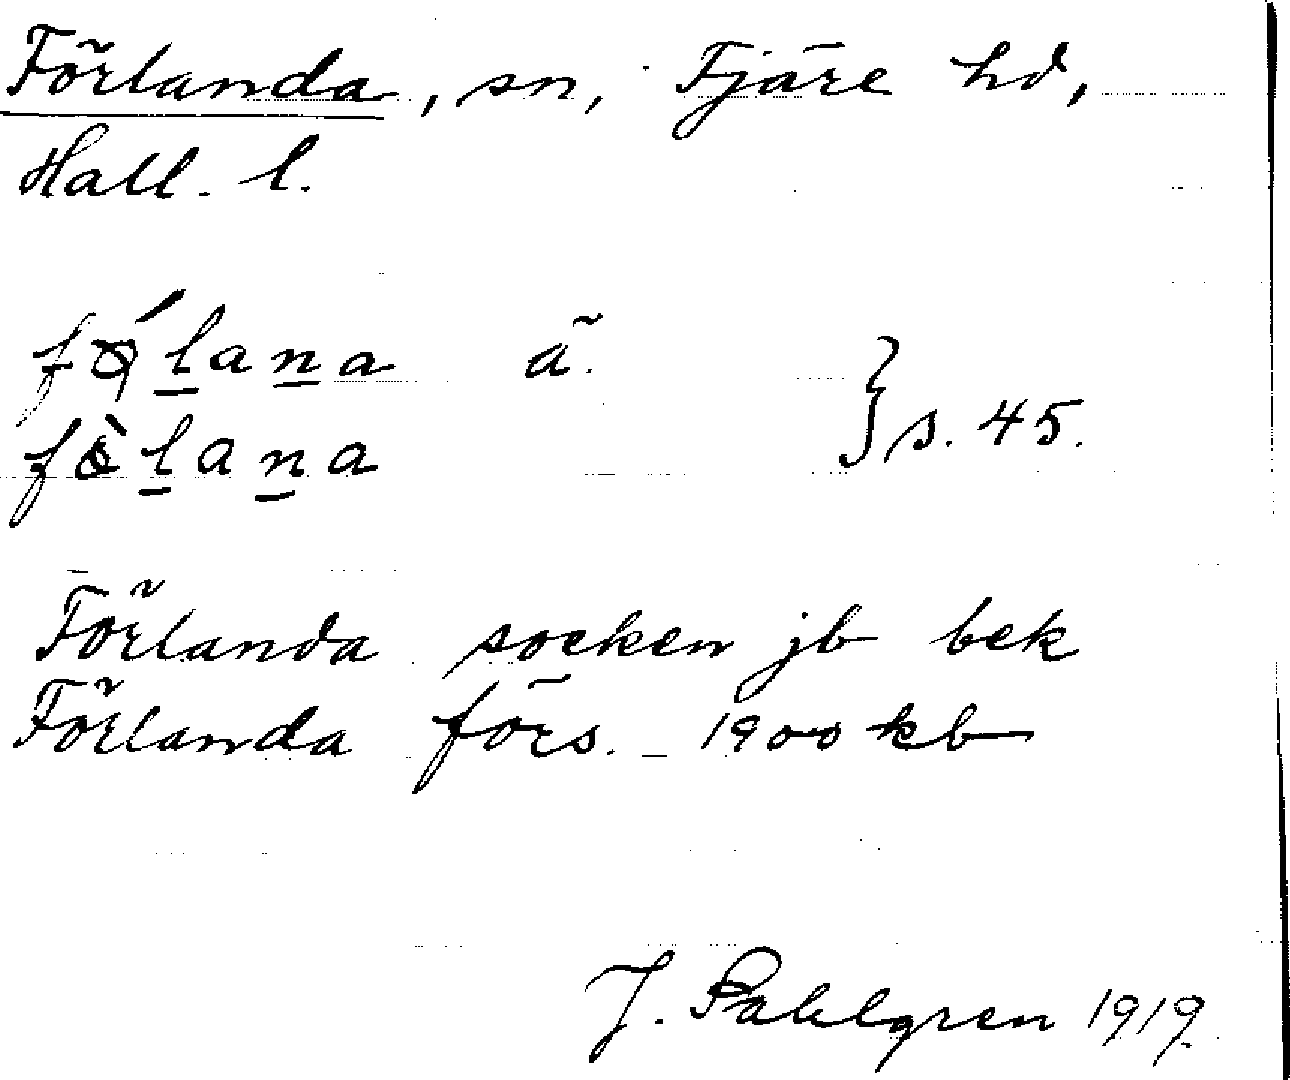 Förlanda, sn, Fjäre hd,
Hall. l.
fǿlana ä.
fø̀lana } s. 45.
Förlanda socken jb bek
Förlanda förs. – 1900 kb
J. Sahlgren 1919.